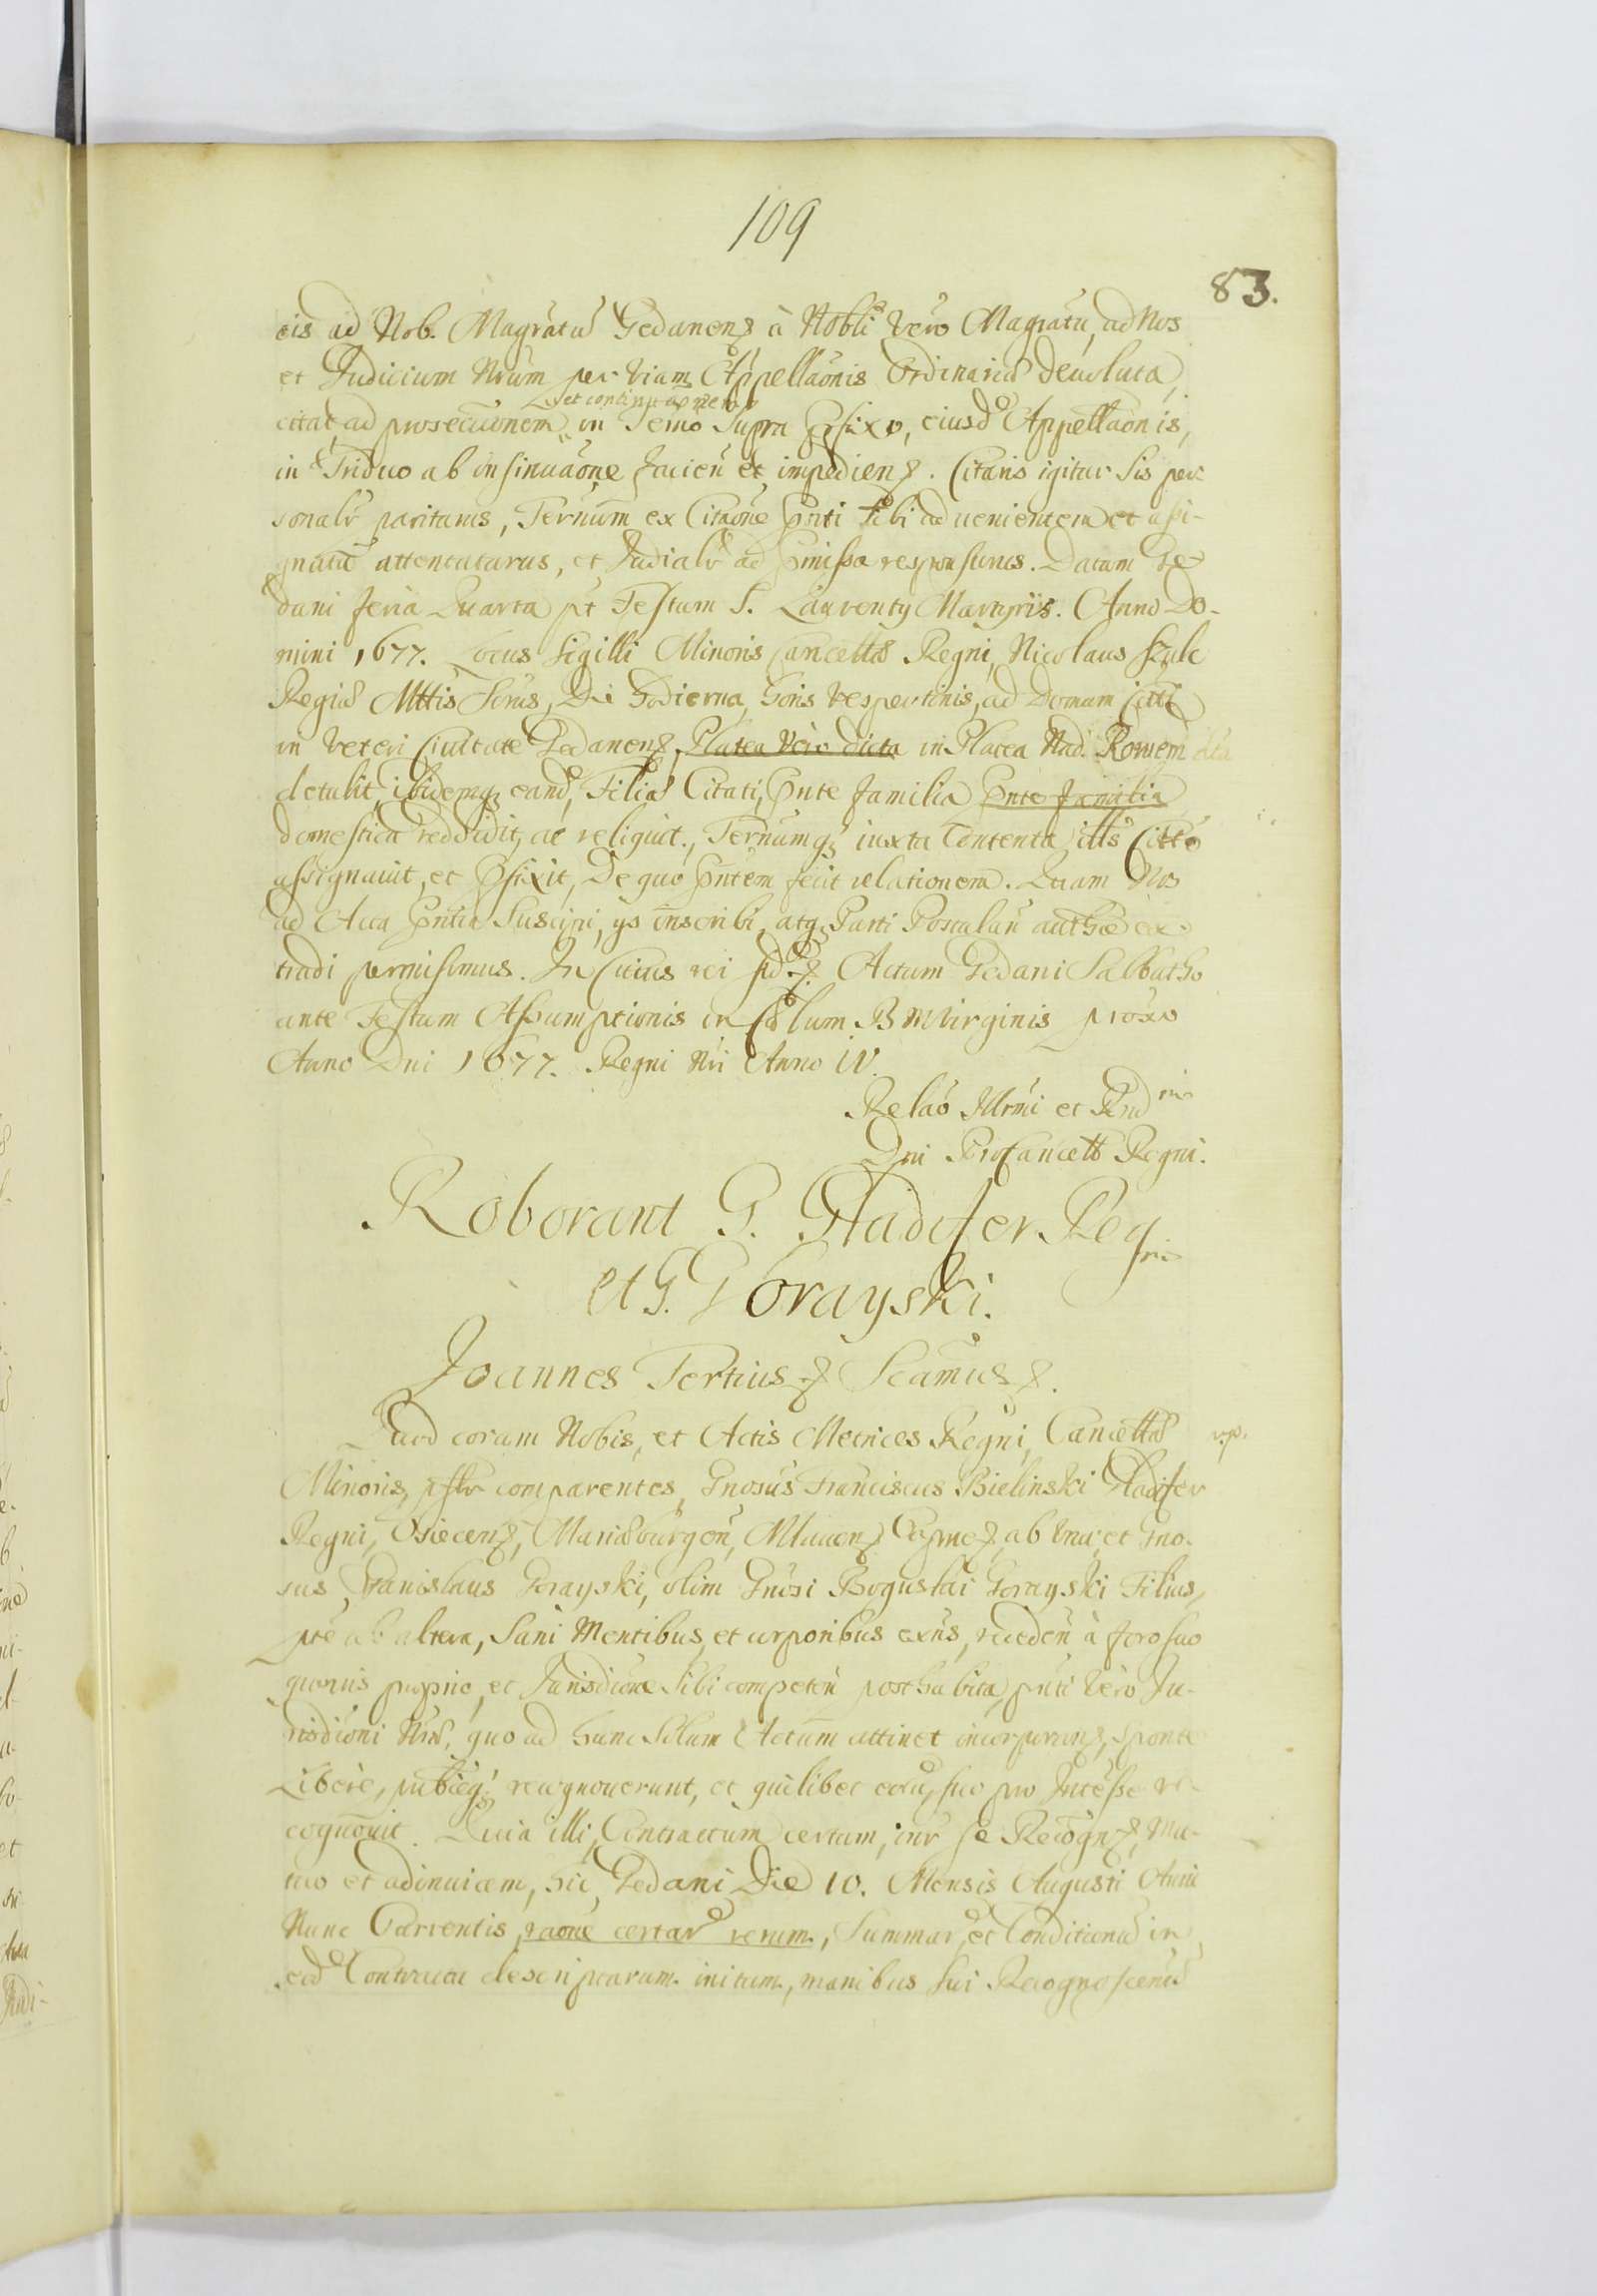 109
83.
cis ad Nob. Magratū Gedanens à Nobli vero Magratu, ad Nos
et Judicium Nrum per viam Appellaonis Ordinaria devoluta,
et continuaonem
citat, ad prosecuonem in Termo Supra Pfixo, eiusd Appellaonis,
in Triduo ab insinuaone facien et impedien. Citatus igitur Sis per
sonalr pariturus, Ternum ex Citaone Pnti Tibi advenientem et assi-
gnatū attentaturus, et Judialr ad Pmissa responsurus. Datum Ge
dani feria Quarta pt Festum S. Laurentij Martyris. Anno Do-
mini 1677. Locus Sigilli Minoris Cancellæ Regni, Nicolaus Szulc
Regiæ Mttis Scrus, Die hodierna, horis vespertinis, ad Domum Citti
in veteri Civitate Gedanens, Platea Vero dicta in Platea Nad. Rowem dta
detulit, ibidemq eand, Filiæ Citati, Pnte familia Pnte familia
domestica reddidit, ac reliquit, Ternumq iuxta Contenta ills Citto
assignavit, et Pfixit, De quo Pntem fecit relationem. Quam Nos
ad Acta Pntia Suscipi, ys inscribi, atq Parti Postulan authce ex
tradi permisimus. In Cuius rei fid. Actum Gedani Sabbatho
ante Festum Assumptionis in Cælum B M Virginis proxo
Anno Dni 1677. Regni Nri Anno IV.
Relao Illrmi et Rnd mi
Dni ProCancell Regni.
Roborant G. Gladifer Reg
ni
et G. Gorayski.
Joannes Tertius Scamus.
Quod coram Nobis, et Actis Metrices Regni, Cancellæ
Minoris, pslr comparentes, Gnosus Franciscus Bielinski Gladifer
Regni, Osiecens, Mariæburgen, Mlavens Capnes, ab una, et Gno-
sus Stanislaus Gorayski, olim Gnosi Boguslai Gorayski Filius,
pte ab altera, Sani Mentibus et corporibus exns, receden à foro suo
quovis proprio, et Jurisdione Sibi competen posthabita, pnti vero Ju-
risdioni Nræ, quo ad hunc Solum Actum attinet incorporans, sponte
Libere, publceq recognoverunt, et quilibet eoru suo pro Interesse re-
cognovit. Quia illi, Contractum certum, intr se Recogns, Mu-
tuo et adinvicem, hic Gedani Die 10. Mensis Augusti Anni
Nunc Currentis, raone certar rerum, Summar et Conditionū in
eod Contractu descriptarum initum, manibus sui Recognoscentiū